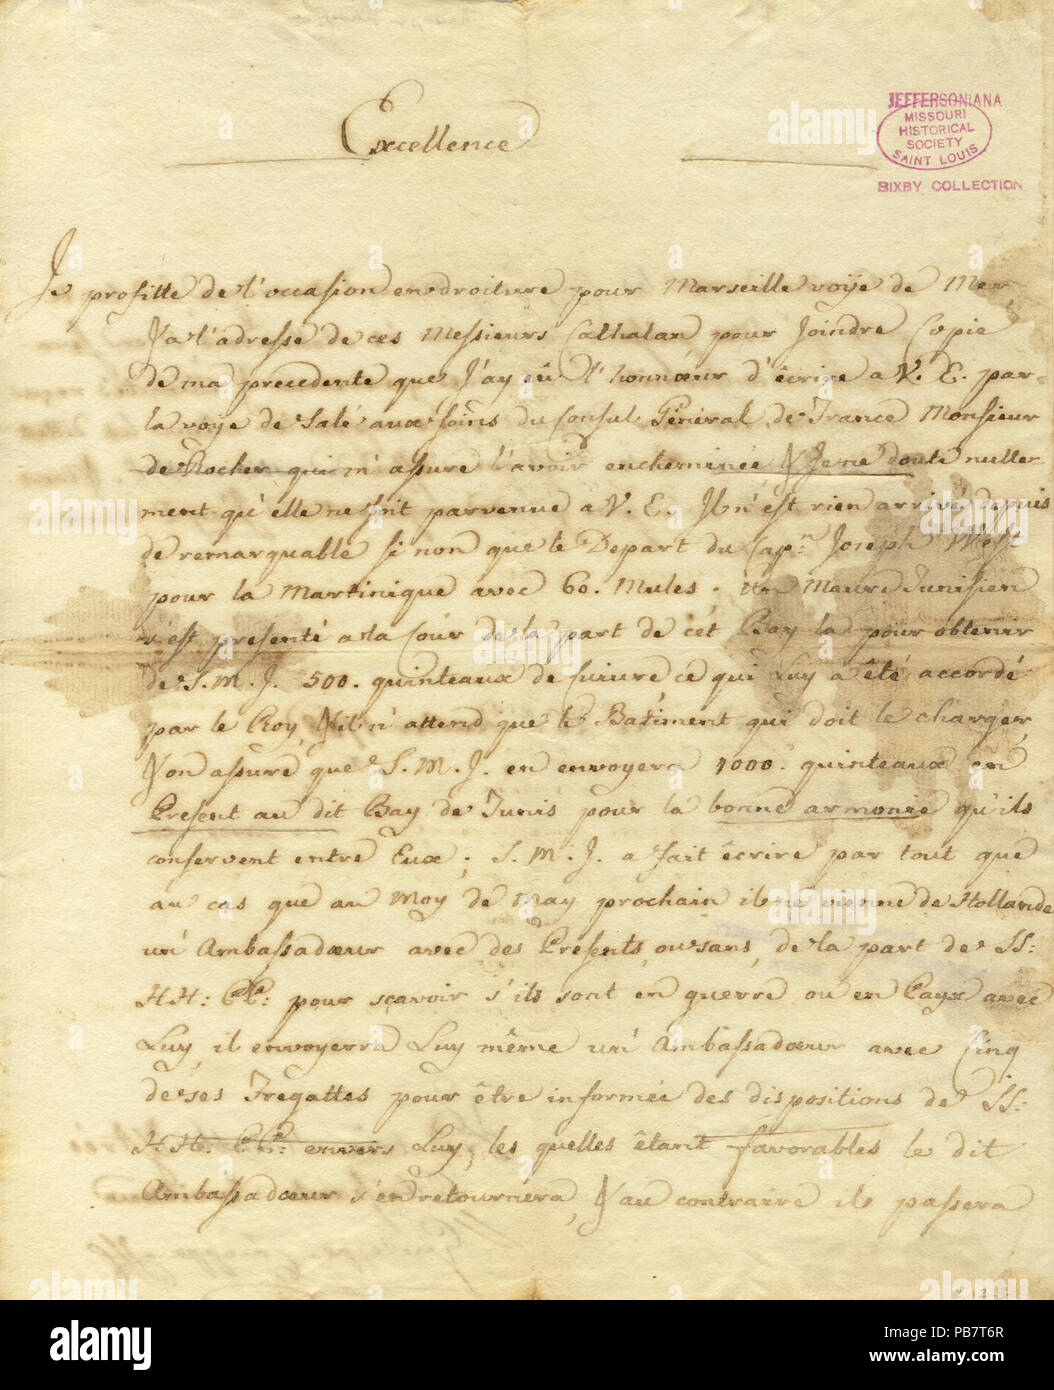 Excellence
JEFFERSONIANA
MISSOURI
HISTORICAL
SOCIETY
SAINT LOUIS
BIXBY COLLECTION
Je profitte de l'occasion en droiture pour Marseille voÿe de Mer,
& a l'adresse de ces Messieurs Cathalan pour Joindre Copie
de ma precedente que J'ay eû l'honnœur d'êcrire a V. E. par
la voÿe de Salé aux soins du Consul Général de France Monsieur
de Rocher qui m'assure l'avoir encheminée & Je ne doute nulle-
ment qu'elle ne soit parvenue a V. E. Il n'est rien arrivé depuis
de remarquable si non que le Depart du Capn. Joseph West
pour la Martinique avec 60. Mules. Un Maure Tunisien
s'est presenté a la Cour de la part de cét Bay la pour obtenir
de S. M. J. 500. quinteaux de Cuivre ce qui Luy a êté accordé
par le Roy, & il n'attend que le Batiment qui doit le charger,
& on assure que S. M. J. en envoyera 1000. quinteaux en
Present au dit Bay de Tunis pour la bonne armonie qu'ils
conservent entre Eux; S. M. J. a fait êcrire par tout que
au cas que au Moy de May prochain il ne vienne de Hollande
un Ambassadœur avec des Presents, ou sans, de la part de SS:
HH: PPce: pour sçavoir s'ils sont en guerre ou en Paye avec
Luy, il envoyerra Luy même un Ambassadœur avec Cinq
de ses Fregattes pour être informée des dispositions de SS:
HH: PPce: envers Luy, les quelles êtant favorables le dit
Ambassadœur s'en retournera, & au contraire il passera
alamy
alamy
Image ID: PB7T6R
www.alamy.com